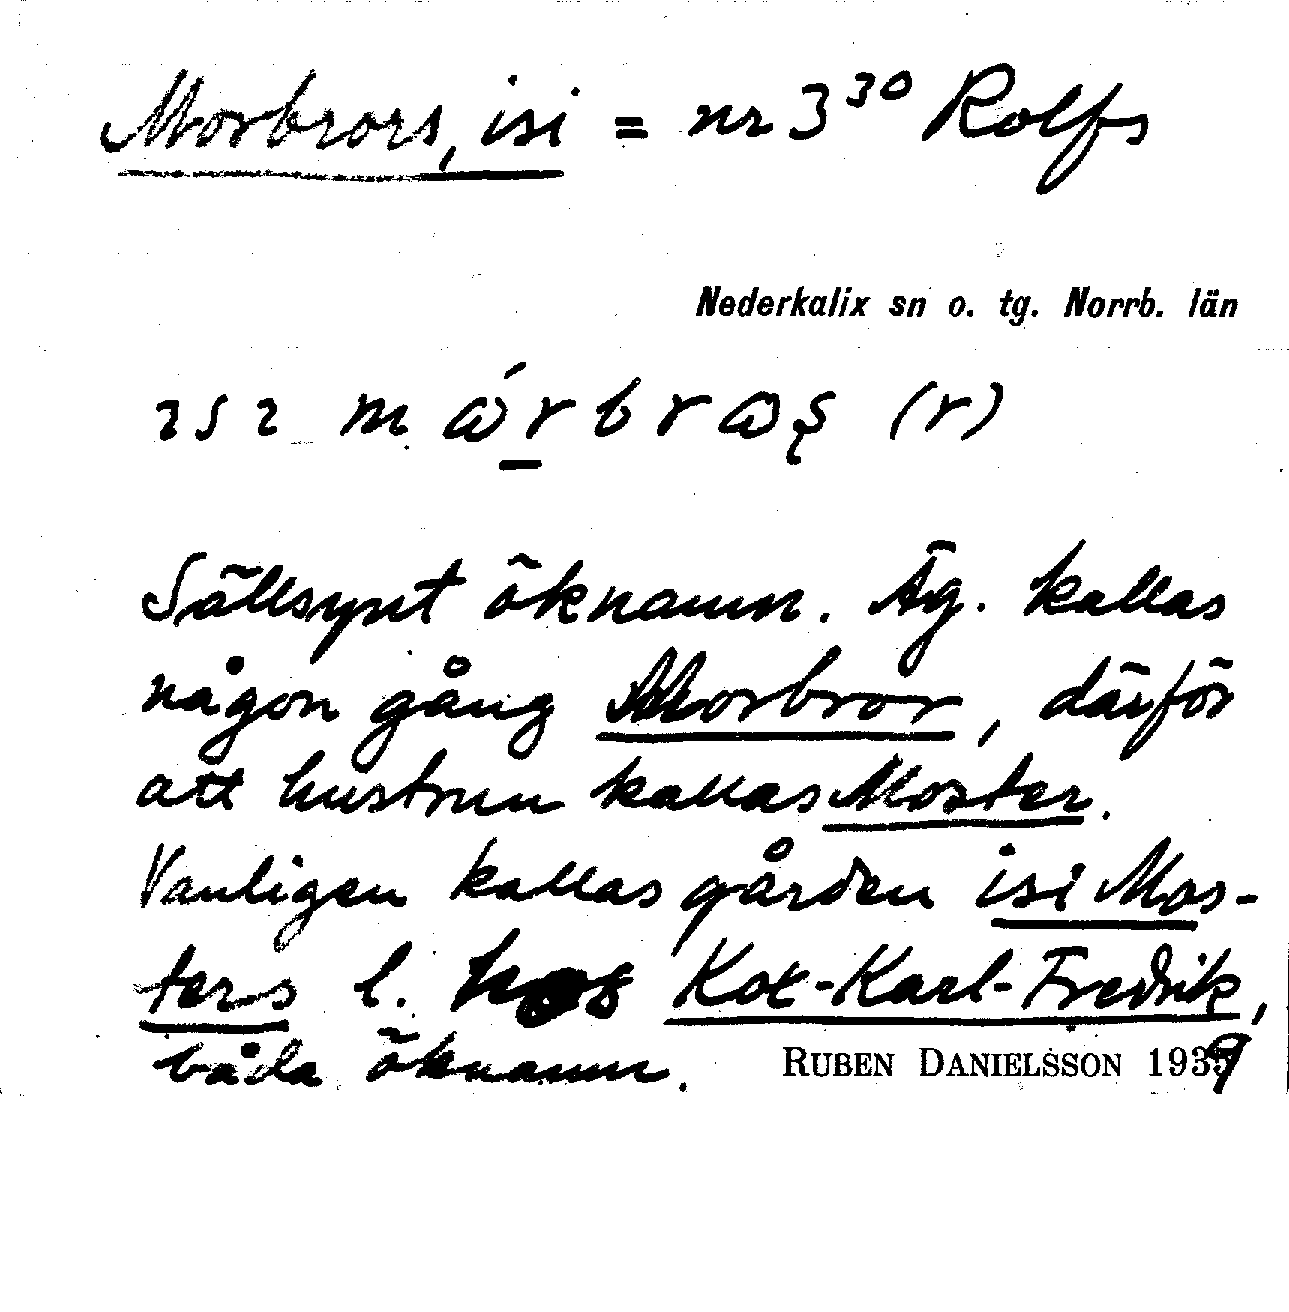 Morbrors, isi = nr 3³⁰ Rolfs
Nederkalix sn o. tg. Norrb. län
Sällsynt öknamn. Äg. kallas
någon gång Morbror, därför
att hustrun kallas Moster.
Vanligen kallas gården isi Mos-
ters l. hos Kot-Karl-Fredrik,
båda öknamn. RUBEN DANIELSSON 1939